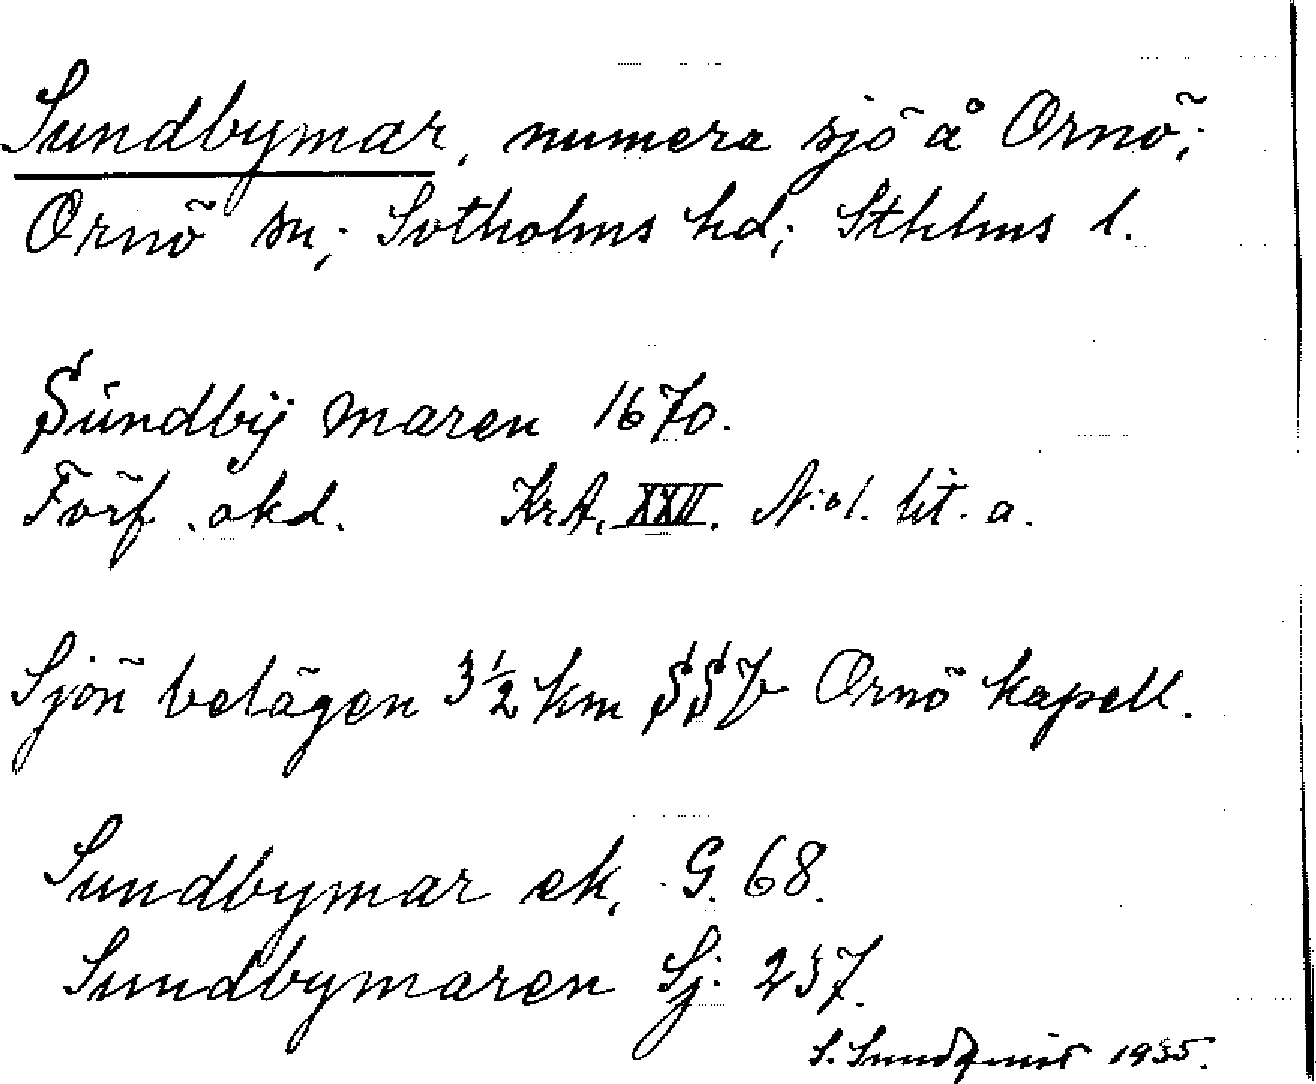 Sundbymar, numera sjö å Ornö;
Ornö sn; Sotholms hd; Sthlms l.
Sundbÿ maren 1670.
Förf. okd. KrA. XXII. N:o1. lit. a.
Sjön belägen 3 1/2 km SSV Ornö kapell.
Sundbymar ek. G. 68.
Sundbymaren Sj. 237.
S. Sundqvist 1935.